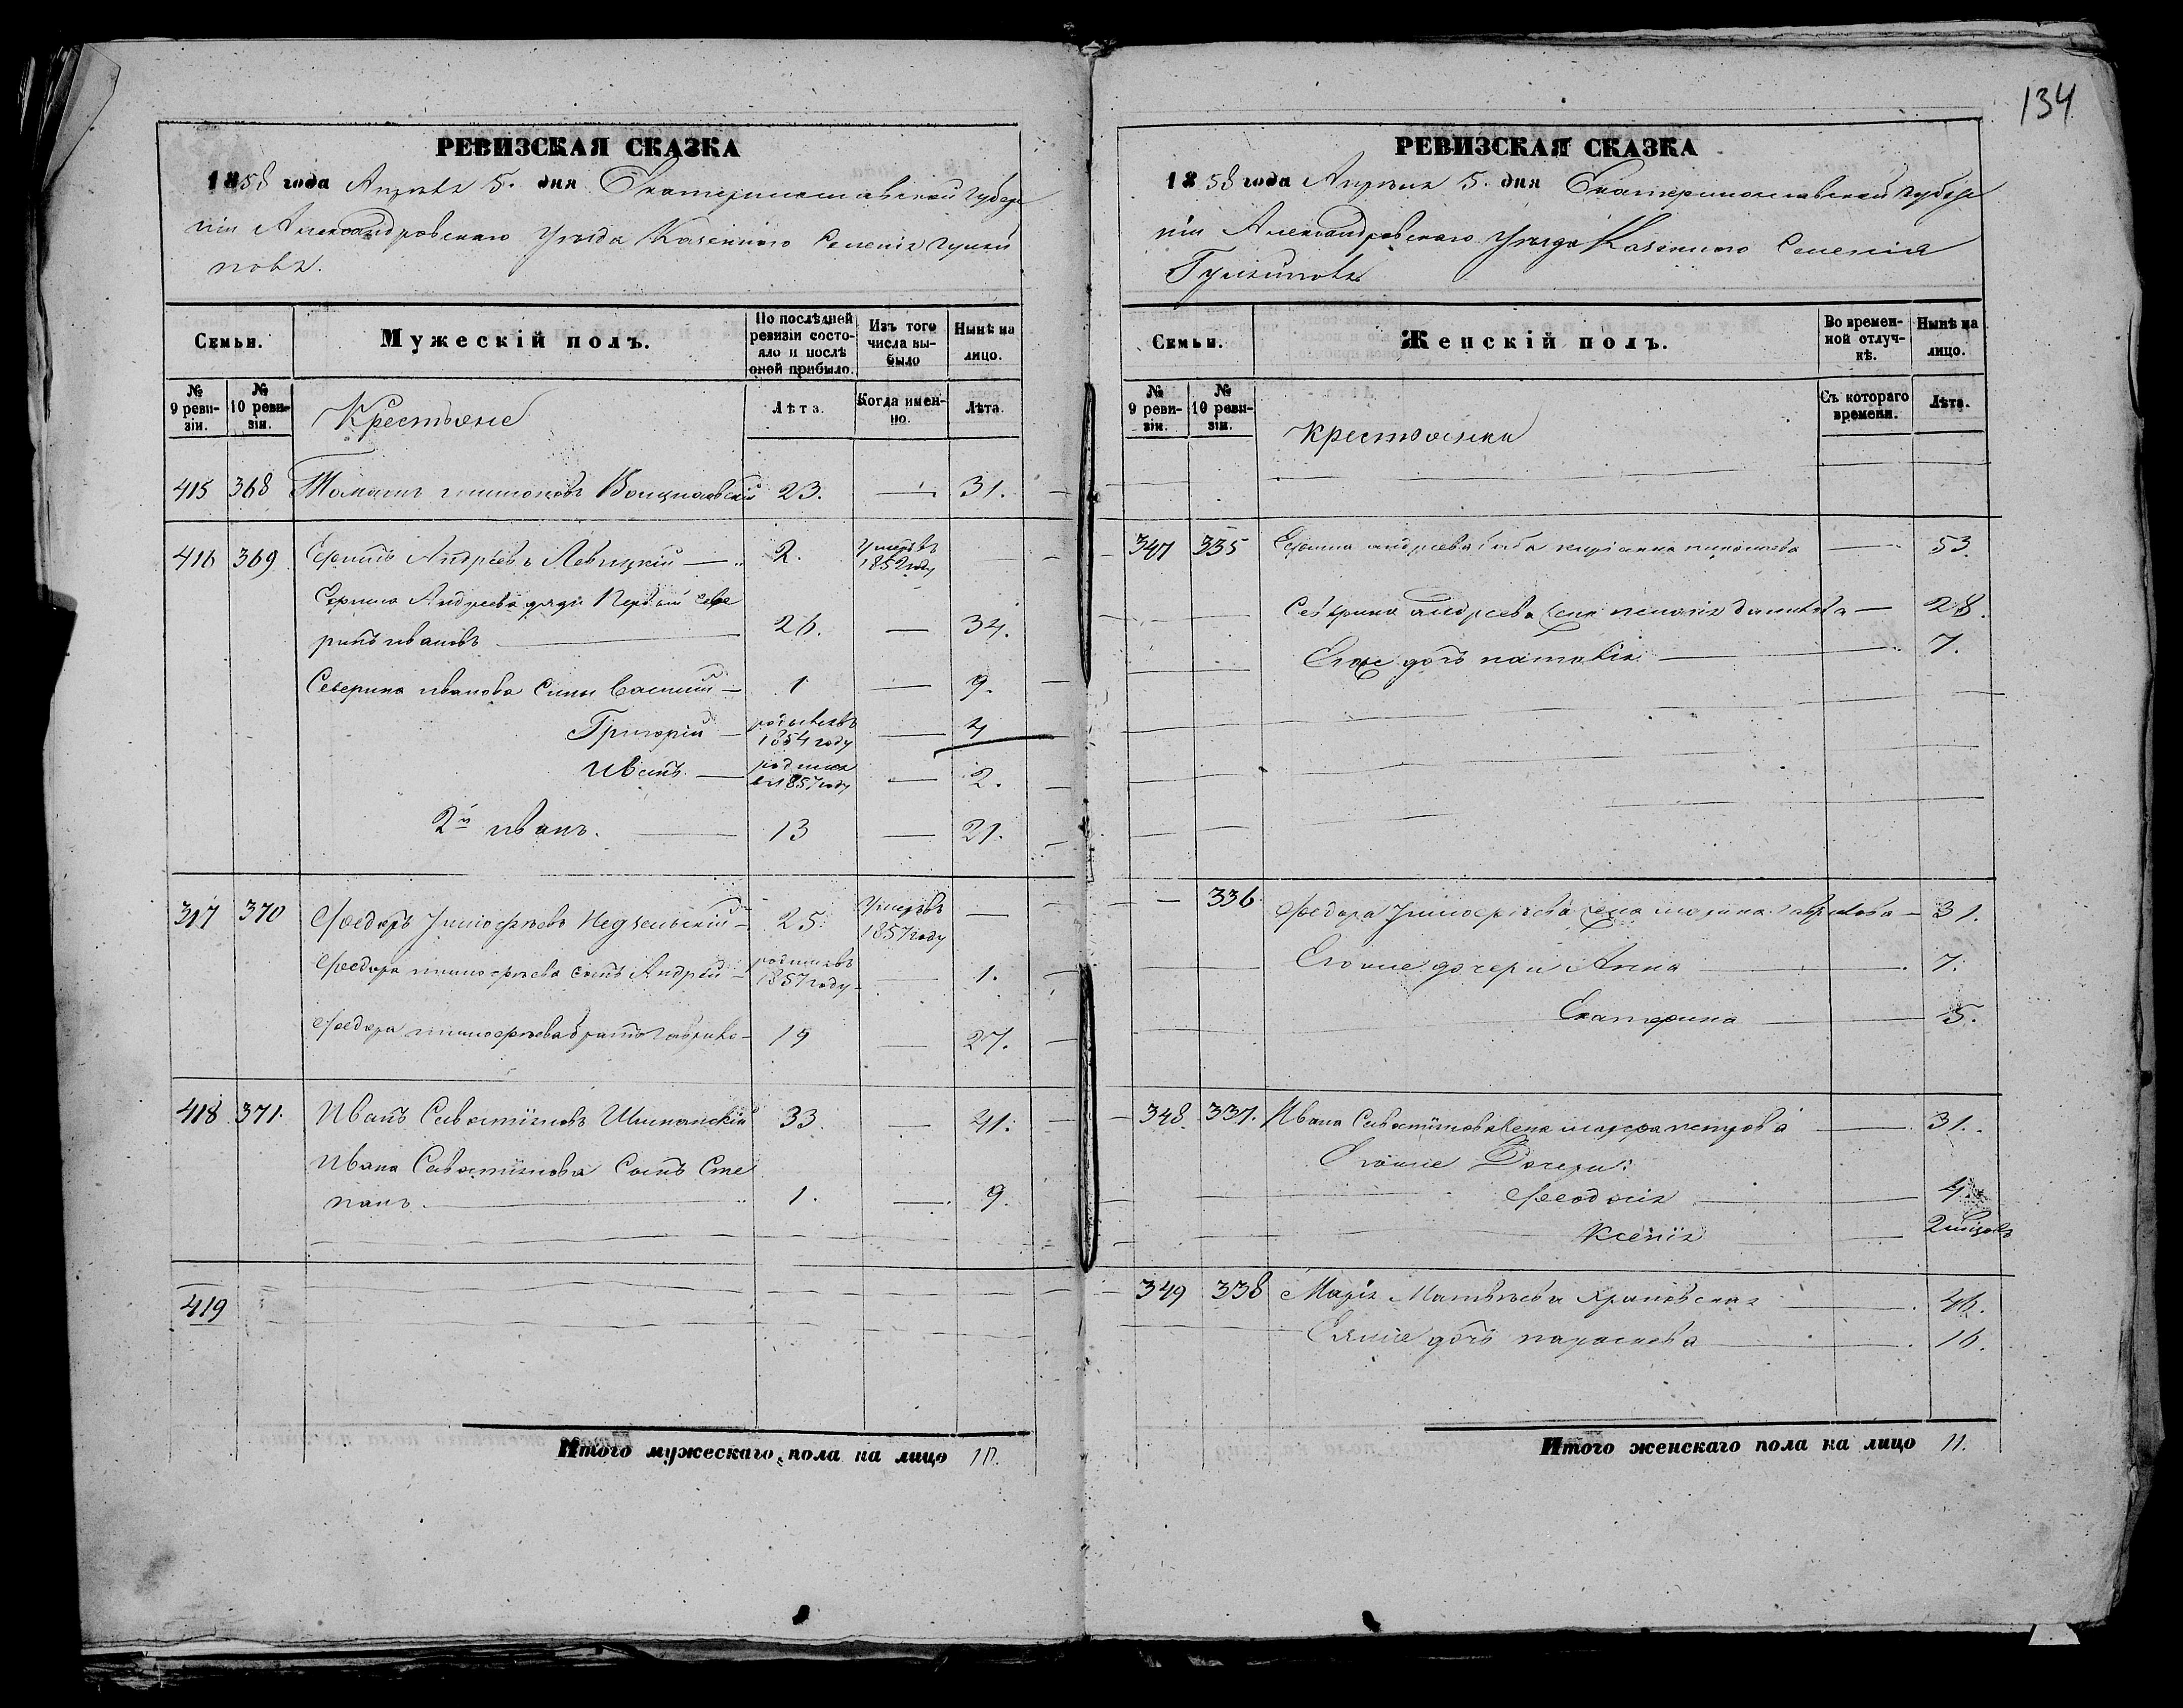 134
РЕВИЗСКАЯ СКАЗКА
1858 года Апрѣля 5. дня Екатеринославской Губер
ніи Александровскаго Уѣзда Казеннаго Селенія Гуляй
полѣ.
Семьи.
Мужескій полъ.
По послѣдней ревизіи состояло и послѣ оной прибыло.
Изъ того числа выбыло
Нынѣ на лицо.
№ 9 ревизіи.
№ 10 ревизіи.
Крестьяне
Лѣта.
Когда именно.
Лѣта.
415 368 23. — 31.
416 369 Андрѣевъ Левицкій — 2. Умеръ въ 1852 году —
Андрѣева дяди Первый Севе
ринъ Ивановъ — 26. — 34.
Северина Иванова Сыны Василій — 1 — 9.
Григорій — родился въ 1854 году — 4
Иванъ — родился въ 1857 году — 2.
2й Иванъ. — 13 — 21.
317 370 Феодоръ Тимофѣевъ Недзельскій — 25. Умеръ въ 1857 году —
Феодора Тимофѣева сынъ Андрѣй — родился въ 1857 году — 1.
Феодора Тимофѣева братъ — 19 — 27.
418 371. Иванъ Савостіяновъ 33. — 41.
Ивана Савостіянова Сынъ Сте
панъ — 1. — 9.
419
Итого мужескаго пола на лицо 10.
РЕВИЗСКАЯ СКАЗКА
1858 года Апрѣля 5. дня Екатеринославской Губер
ніи Александровскаго Уѣзда Казеннаго Селенія
Гуляйполѣ
Семьи.
Женскій полъ.
Во временной отлучкѣ.
Нынѣ на лицо.
№ 9 ревизіи.
№ 10 ревизіи.
Крестьянки
Съ котораго времени.
Лѣта.
347 335 Андрѣева баба — 53.
Северина Андрѣева жена — 28.
Егоже дочь Наталія — 7.
336 Феодора Тимофѣева жена — 31.
Егоже дочери Анна — 7.
Екатерина — 5.
348. 337. Ивана Савостіянова жена Марфа Петрова — 31.
Егоже Дочери:
Феодосія — 4.
Ксенія — 2 мѣсяцевъ
349 338 Марія Матвѣева — 46.
Еяже дочь Параскева — 16.
Итого женскаго пола на лицо 11.